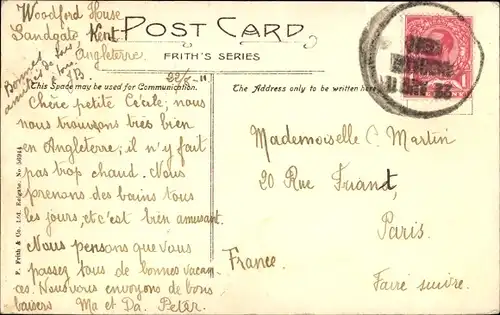 Woodford House
Sandgate Kent
Angleterre
POST CARD
FRITH'S SERIES
22/8 - 11
This Space may be used for Communication.
The Address only to be written here
Chère petite Cécile; nous
nous trouvons très bien
en Angleterre; il n'y fait
pas trop chaud. Nous
prenons des bains tous
les jours, et c'est bien amusant.
Nous pensons que vous
passez tous de bonnes vacan-
ces. Nous vous envoyons de bons
baisers Ma et Da. Peter.
Mademoiselle C. Martin
20 Rue Friant,
Paris.
France.
Faire suivre.
F. Frith & Co. Ltd. Reigate. No.